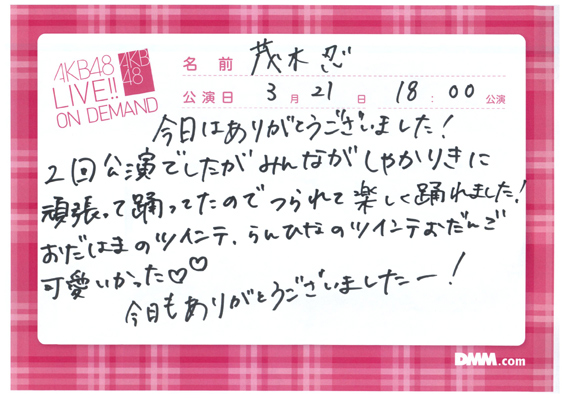 AKB48
LIVE!!
ON DEMAND
AKB
48
名前 茂木忍
公演日 3月21日 18:00公演
今日はありがとうございました！
2回公演でしたがみんながしゃかりきに
頑張って踊ってたのでつられて楽しく踊れました！
おだはまのツインテ、らんひなのツインテおだんご
可愛いかった♡♡
今日もありがとうございましたー！
DMM.com